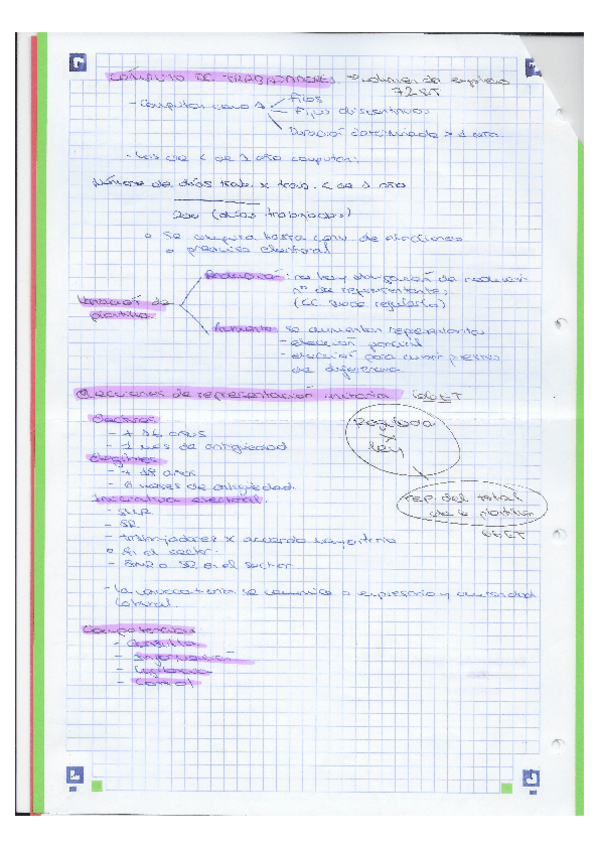 CÓMPUTO DE TRABAJADORES. de empleo
72.8T
- Computan como 1 Fijos
Fijos discontinuos
Duración determinada > 1 año.
- Los de < de 1 año computan:
Número de días trab. x trab. < de 1 año
200 (días trabajados)
o Se computa hasta conv. de elecciones
o preaviso electoral
Variación de plantilla
Reducción: no hay obligación de reducir
nº de representantes
(CC puede regularlo)
Aumento se aumentan
- elección parcial
- elección para cubrir
de diferencia
Elecciones de representación unitaria 69 ET
Electores
- + 16 años
- 1 mes de antigüedad
Elegibles
- + 18 años
- 6 meses de antigüedad.
Iniciativa electoral.
- SMR
- SR
- trabajadores x acuerdo mayoritario
o En el sector.
- SMR o SR en el sector
- La convocatoria se comunica a empresario y autoridad
laboral.
Regulada
x
ley
rep. del total
de la plantilla
66 ET
Competencias
- Consulta
- Información
- Vigilancia
- Control